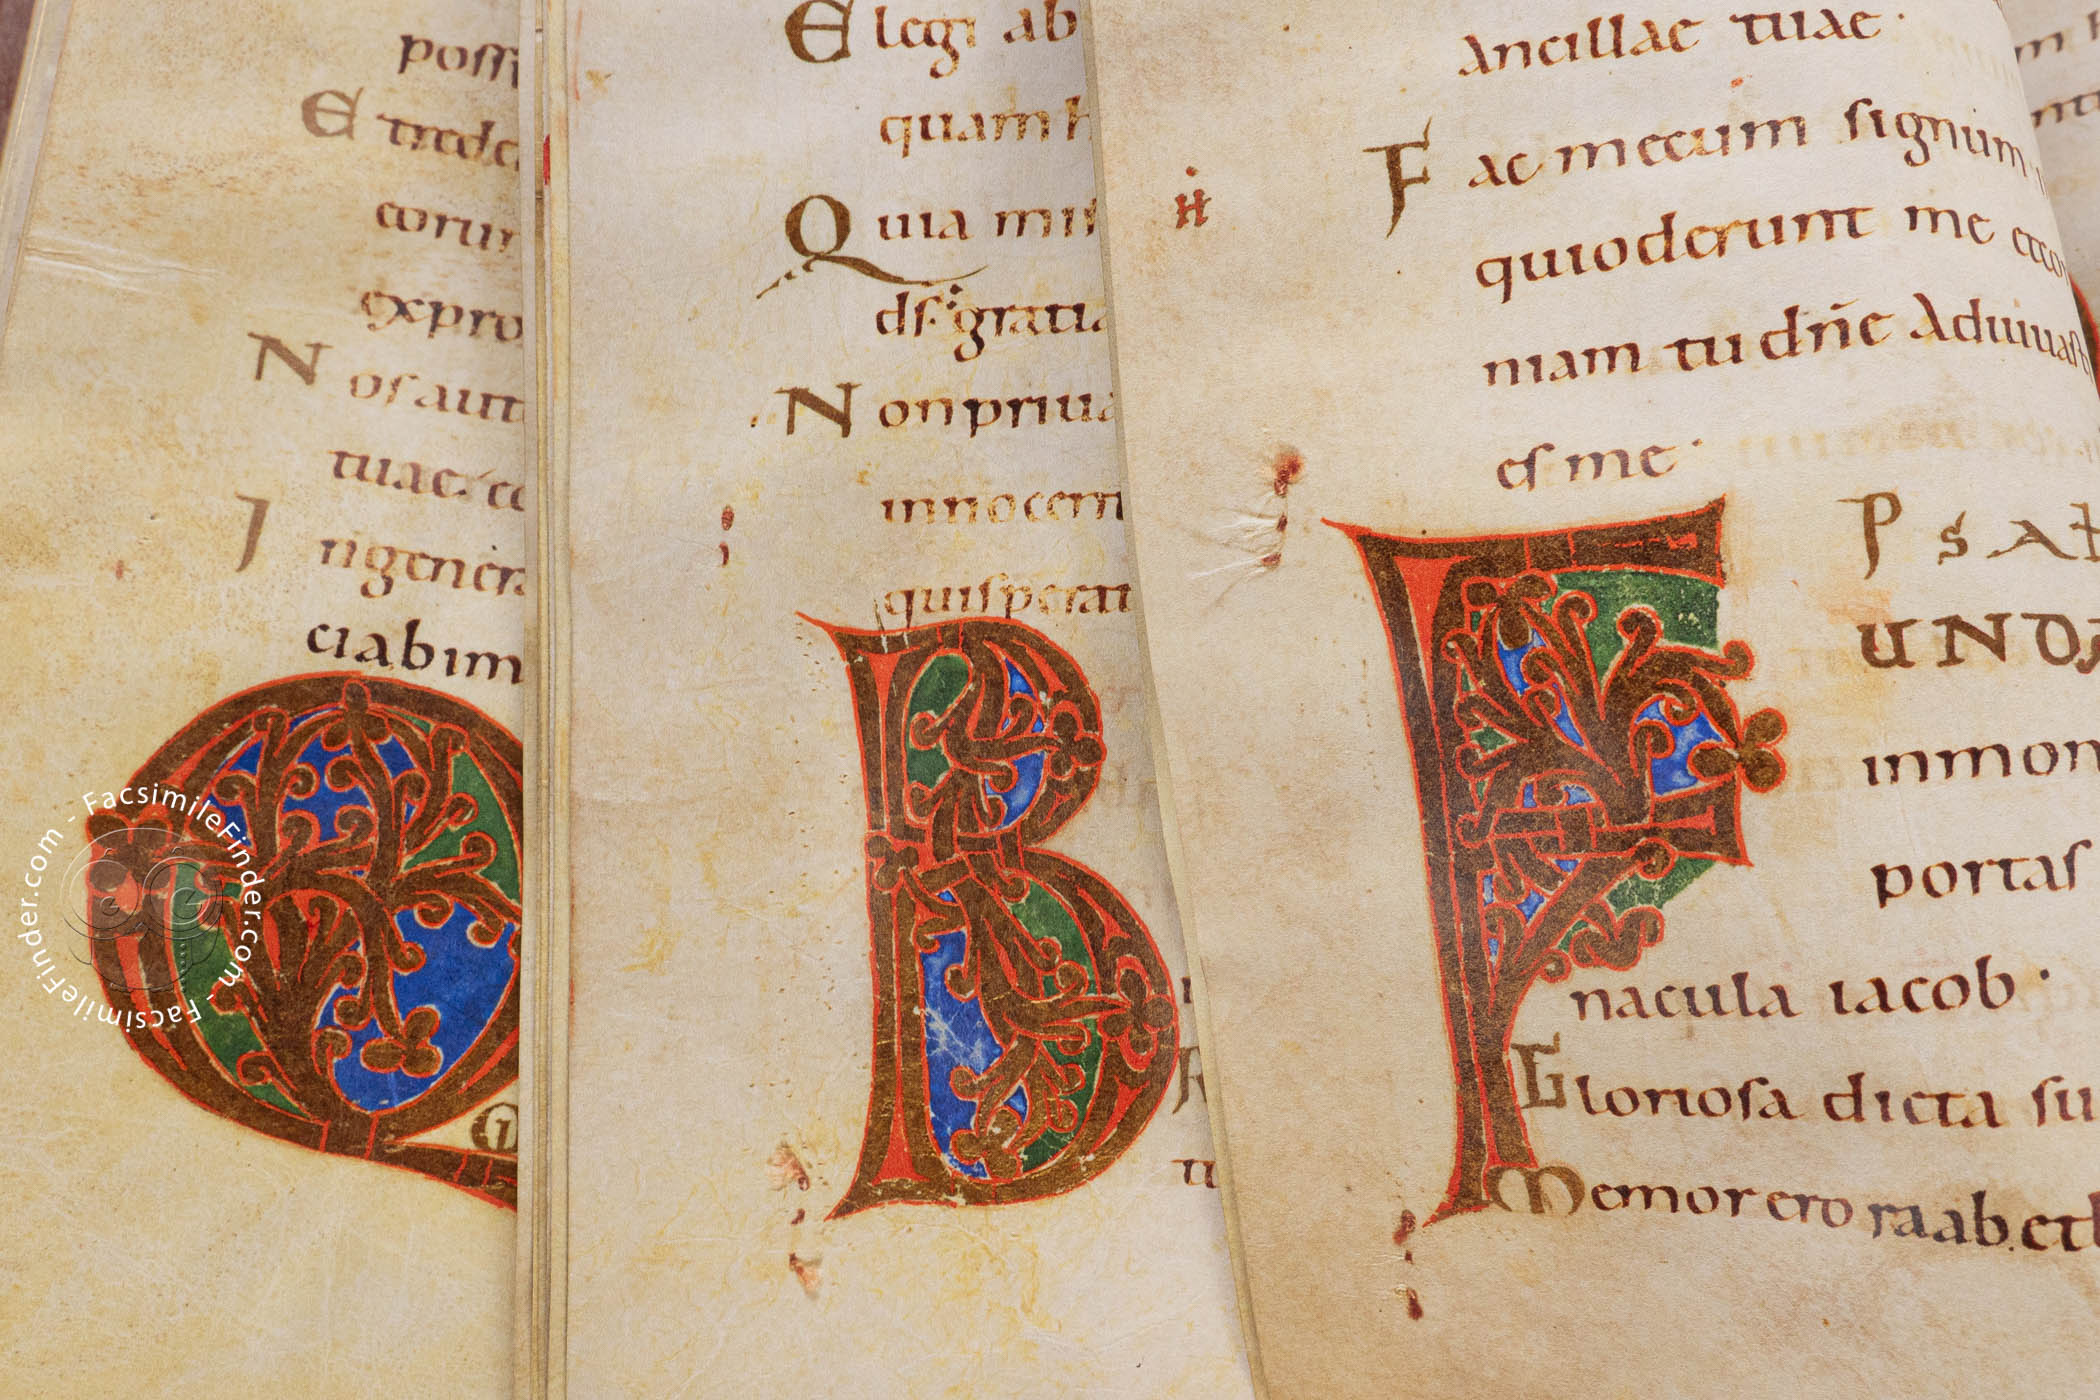 possi
E t redd
corum
expro
N os aut
tuae. co
I n gener
ciabim
E legi ab
quam h
Q uia mis
ds. gratia
N on priua
innocent
qui sperat
B
ancillae tuae·
F ac mecum signum
qui oderunt me et co
niam tu dn̄e adiuuasti
es me·
F PSAL
UNDA
in mon
portas
nacula iacob·
Gloriosa dicta su
Memor ero raab. et b
FacsimileFinder.com - FacsimileFinder.com - FacsimileFinder.com